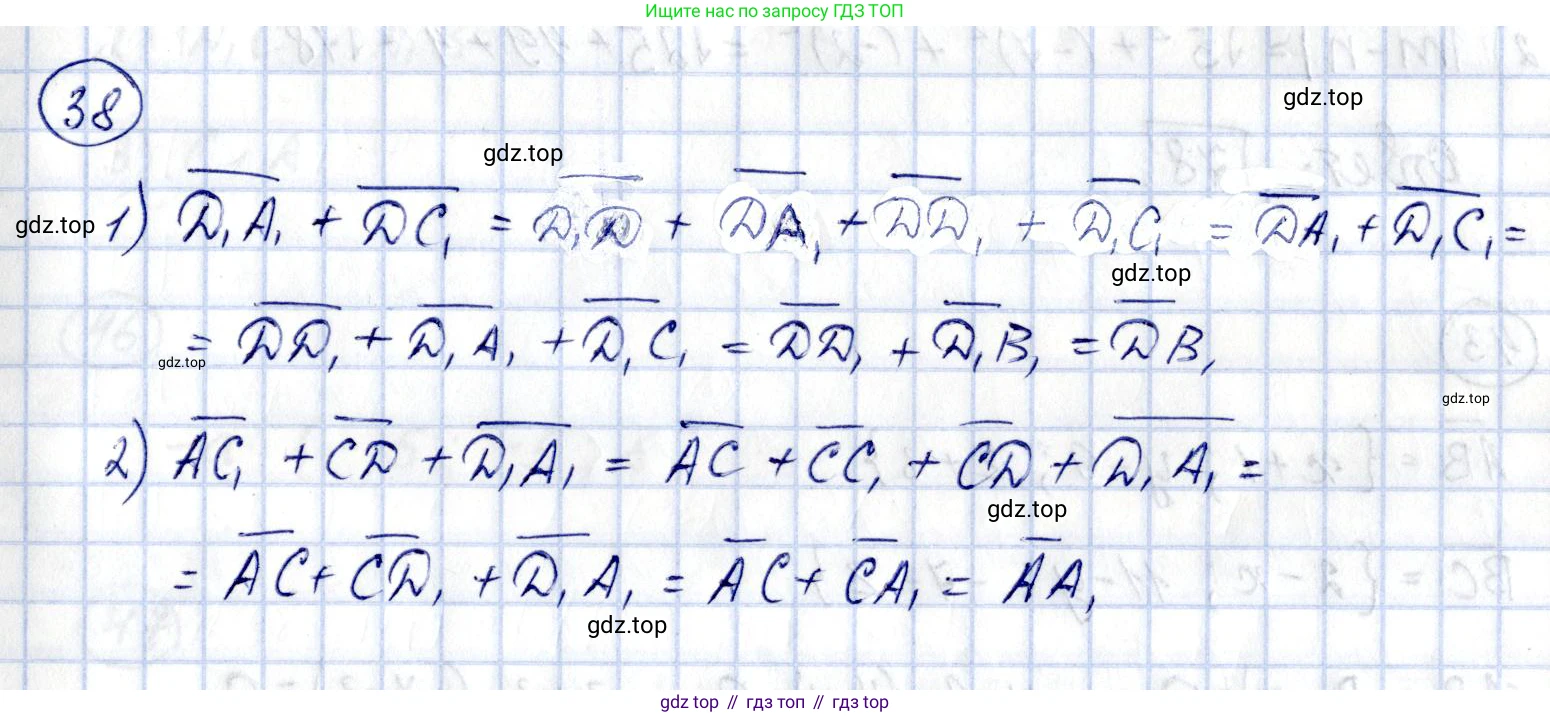 Ищите нас по запросу ГДЗ ТОП
38
gdz.top
gdz.top
gdz.top 1) D₁A₁ + DC₁ = D₁D + DA₁ + DD₁ + D₁C₁ = DA₁ + D₁C₁ =
gdz.top
= DD₁ + D₁A₁ + D₁C₁ = DD₁ + D₁B₁ = DB₁
gdz.top
gdz.top
2) AC₁ + CD + D₁A₁ = AC + CC₁ + CD + D₁A₁ =
gdz.top
= AC + CD₁ + D₁A₁ = AC + CA₁ = AA₁
gdz.top
gdz top // гдз топ // гдз top